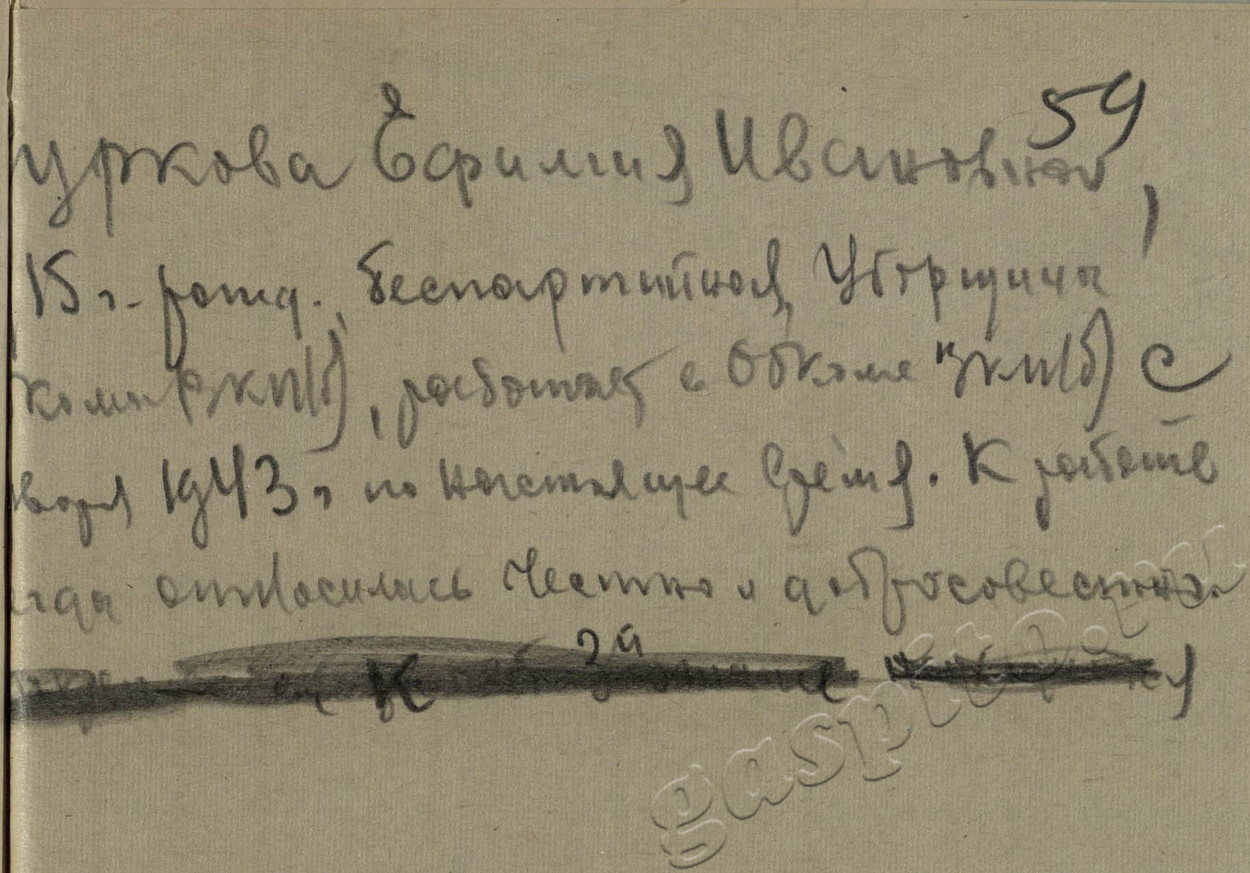 59
уркова Ефимия Ивановна,
15 г. рожд., беспартийная, Уборщица
кома ВКП(б), работает в Обкоме ВКП(б) с
варя 1943 г. по настоящее время. К работе
гда относилась честно и добросовестно